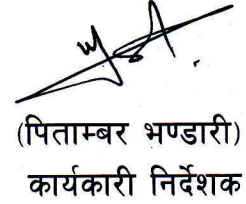 (पिताम्बर भण्डारी)
कार्यकारी निर्देशक